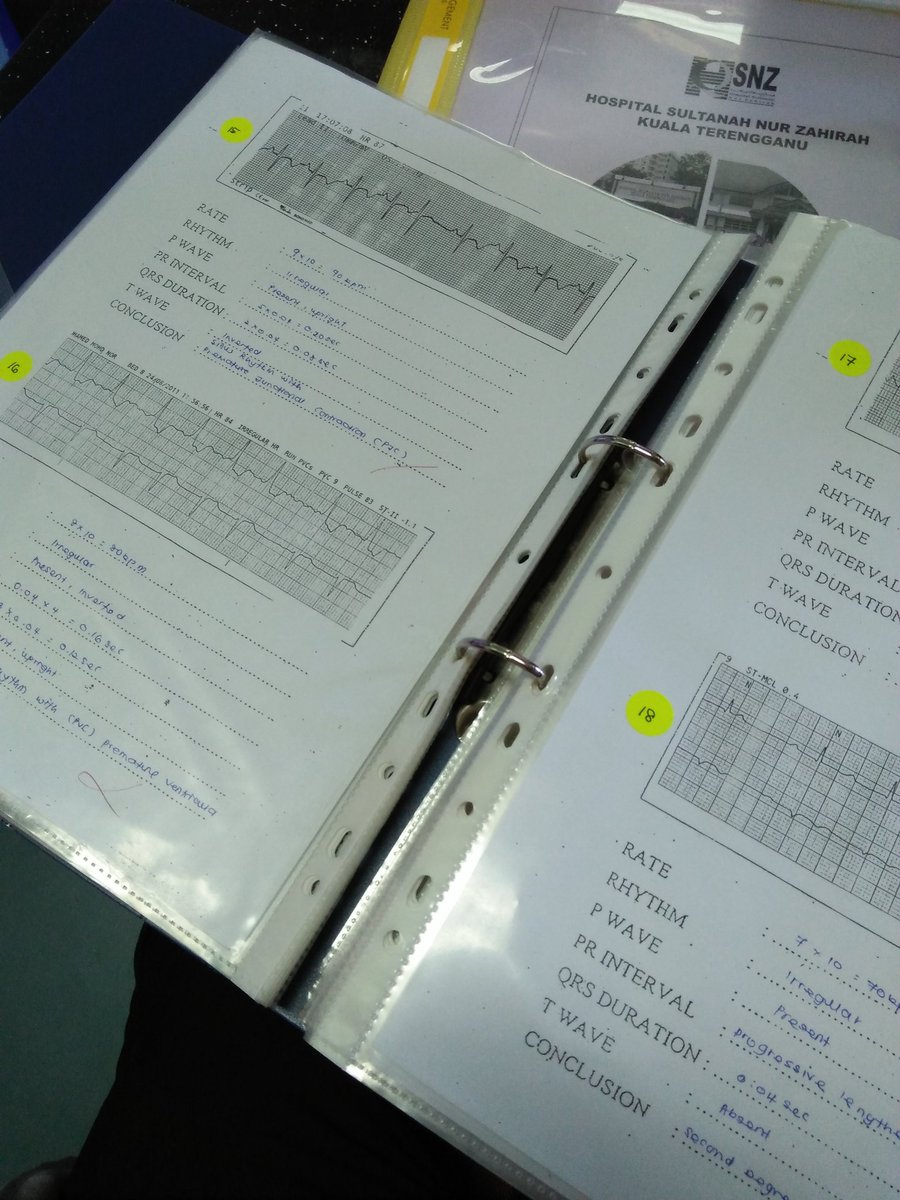 GEMENT
SNZ
HOSPITAL SULTANAH NUR ZAHIRAH
KUALA TERENGGANU
15
17:07:08 HR 87
RATE
: 9 x 10 = 90 bpm
RHYTHM
: Irregular
P WAVE
: Present, upright
PR INTERVAL
: 5 x 0.04 = 0.20 sec
QRS DURATION
: 2 x 0.04 = 0.08 sec
T WAVE
: Inverted
CONCLUSION
: Sinus Rhythm with
Premature Junctional Contraction (PJC)
16
HAMED MOHD NOR BED 8 24/06/2011 11:56:56 HR 84 IRREGULAR HR RUN PVCs PVC 9 PULSE 83 ST-II -1.1
: 8 x 10 = 80 bpm
: Irregular
: Present, inverted
0.04 x 4 = 0.16 sec
x 0.04 = 0.12 sec
upright
with (PVC) premature ventricula
17
RATE
RHYTHM
P WAVE
PR INTERVAL
QRS DURATION
T WAVE
CONCLUSION
18
9 ST-MCL 0.4
N
N
RATE
: 7 x 10 = 70
RHYTHM
: Irregular
P WAVE
: Present
PR INTERVAL
: progressive
QRS DURATION
: 0.04 sec
T WAVE
: Absent
CONCLUSION
: Second